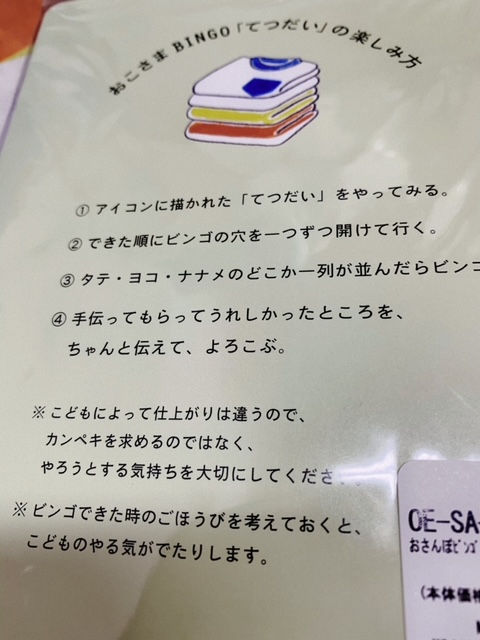 おこさま BINGO「てつだい」の楽しみ方
① アイコンに描かれた「てつだい」をやってみる。
② できた順にビンゴの穴を一つずつ開けて行く。
③ タテ・ヨコ・ナナメのどこか一列が並んだらビンゴ
④ 手伝ってもらってうれしかったところを、
ちゃんと伝えて、よろこぶ。
※ こどもによって仕上がりは違うので、
カンペキを求めるのではなく、
やろうとする気持ちを大切にしてくださ
※ ビンゴできた時のごほうびを考えておくと、
こどものやる気がでたりします。
OE-SA-
おさんぽﾋﾞﾝｺﾞ
(本体価格